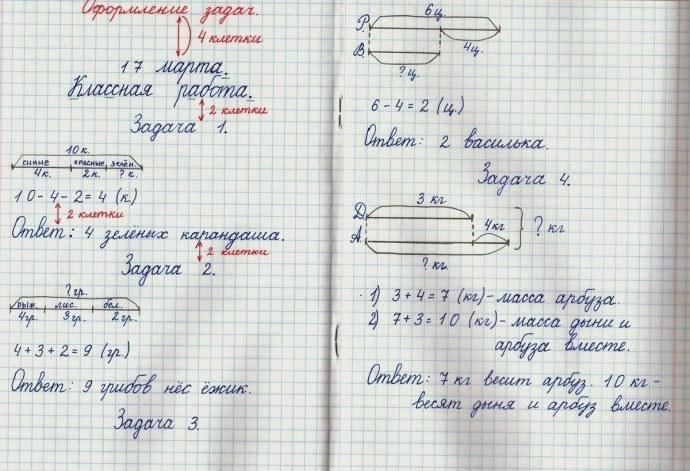 Оформление задач.
4 клетки
17 марта.
Классная работа.
2 клетки
Задача 1.
10к.
синие красные зелён.
4к. 2к. ? к.
10-4-2=4 (к.)
2 клетки
Ответ: 4 зелёных карандаша.
2 клетки
Задача 2.
? гр.
рыж. лис. бел.
4гр. 3гр. 2гр.
4+3+2=9 (гр.)
Ответ: 9 грибов нёс ёжик.
Задача 3.
6ц.
Р.
4ц.
В.
? ц.
6-4=2 (ц.)
Ответ: 2 василька.
Задача 4.
3 кг
Д.
4кг
? кг
А.
? кг.
1) 3+4=7 (кг)- масса арбуза.
2) 7+3=10 (кг)- масса дыни и
арбуза вместе.
Ответ: 7 кг весит арбуз. 10 кг -
весят дыня и арбуз вместе.